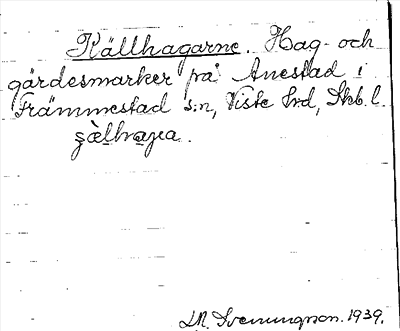 Källhagarne. Hag- och
gärdesmarker på Anestad i
Främmestad s:n, Viste hrd, Skb. l.
J. M. Svenungsson. 1939.